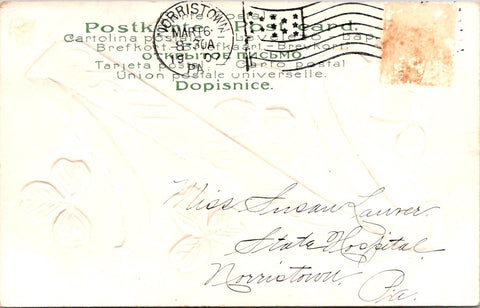 Postkarte — Postcard.
Cartolina postale
Brefkort — Briefkaart — Brevkort.
ОТКРЫТОЕ ПИСЬМО
Tarjeta postal — Carto postal
Union postale universelle.
Dopisnice.
NORRISTOWN
MAR 16
8-30A
19
PA.
Miss. Susan Lauver.
State Hospital
Norristown,
Pa.